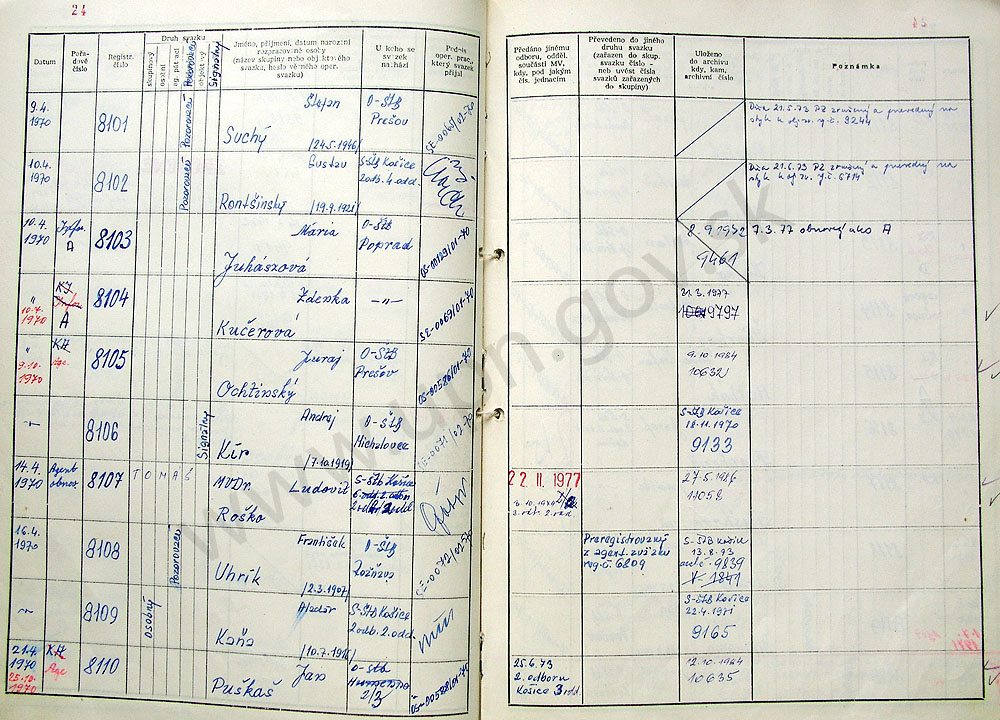 24
Datum
Pořadové číslo
Registr. číslo
Druh svazku
skupinový
osobní
objektový
Pozorovací
Signálny
Jméno, příjmení, datum narození rozpracované osoby
(název skupiny nebo objektového svazku, heslo věného oper. svazku)
U koho se svazek nachází
Podpis oper. prac., který svazek přijal
Předáno jinému odboru, odděl. součásti MV, kdy, pod jakým čís. jednacím
Převedeno do jiného druhu svazku (zařazen do skup. svazku číslo – neb uvést čísla svazků zařazených do skupiny)
Uloženo do archivu kdy, kam, archivní číslo
Poznámka
9.4. 1970
8101
Pozorovací
Štefan
Suchý
/24.5.1946/
O-ŠtB Prešov
Dňa 21.5.73 PZ zrušený a prevedený na
styk k obj. zv. č. 9244
10.4. 1970
8102
Pozorovací
Gustav
Rontšinský
/19.9.1921/
S-ŠtB Košice
2odb. 4.odd.
Dňa 21.6.73 PZ zrušený a prevedený na
styk k obj. zv. č. 6714
10.4. 1970
Infor.
A
8103
Mária
Juhászová
O-ŠtB
Poprad
OS-00129/01-70
8.9.1972
9461
7.3.77 obnovený ako A
"
10.4. 1970
KI
Infor
A
8104
Zdenka
Kučerová
—„—
SE-0069/01-70
31.3.1977
9797
"
9.10. 1970
KA
Age.
8105
Juraj
Ochtinský
O-ŠtB
Prešov
OS-00586/01-70
9.10.1984
10632
8106
Signálny
Andrej
Kír
/7.10.1919/
O-ŠtB
Michalovce
SE-0071/02-70
S-ŠtB Košice
18.11.1970
9133
14.4. 1970
Agent
obnov.
8107
TOMÁŠ
MVDr. Ľudovít
Roško
S-ŠtB Košice
22 11. 1977
27.5.1986
11058
16.4. 1970
8108
Pozorovací
František
Uhrík
/2.3.1907/
O-ŠtB
Rožňava
SE-0073/02-70
Preregistrovaný
z agent. zväzku
reg. č. 6809
S-ŠtB Košice
13.8.73
9839
V-1841
8109
Osobný
Aladár
Kaňa
/10.7.1916/
S-ŠtB Košice
2odb. 2.odd.
S-ŠtB Košice
22.4.1971
9165
21.4. 1970
25.10. 1970
KA
Age
8110
Ján
Puškáš
O-ŠtB
Humenné
2/3
OS-00588/01-70
25.6.73
2. odboru
Košice 3.odd.
12.10.1984
10635
www.upn.gov.sk